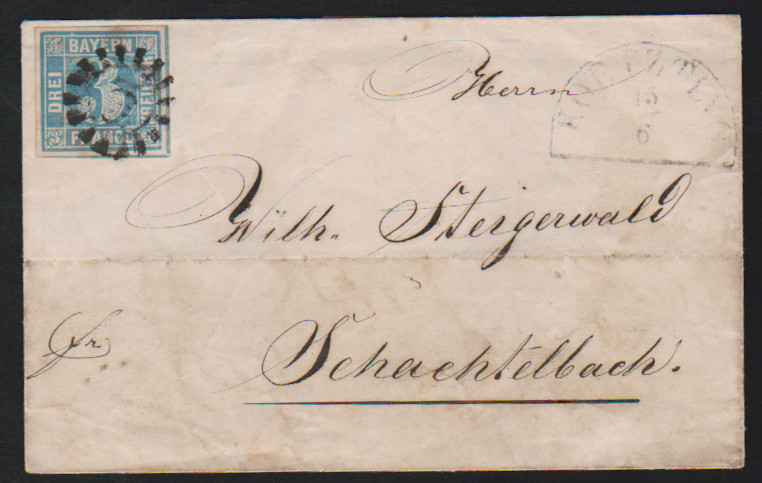 BAYERN
DREI
3
FRANCO
Herrn
KOETZTING
15
6
Wilh. Steigerwald
fr
Schachtelbach.